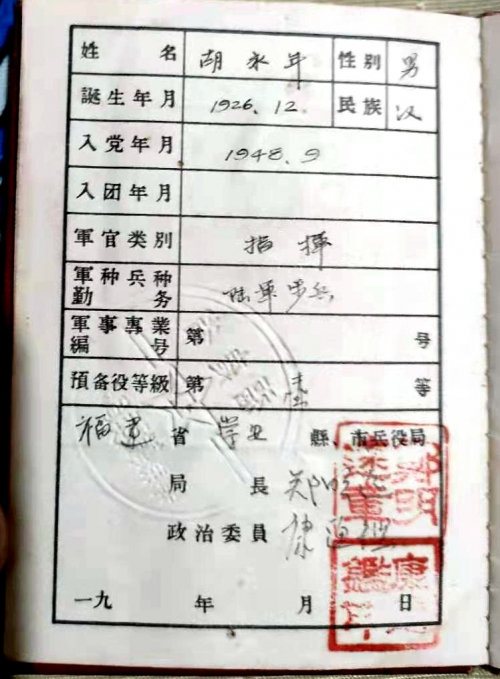 姓名 胡永年 性别 男
誕生年月 1926.12. 民族 汉
入党年月 1948.9
入团年月
軍官类别 指揮
軍种兵种勤务 陆軍步兵
軍事專業編号 第 号
預备役等級 第 壹 等
福建省 縣、市兵役局
局長 郑
政治委員 康
一九 年 月 日